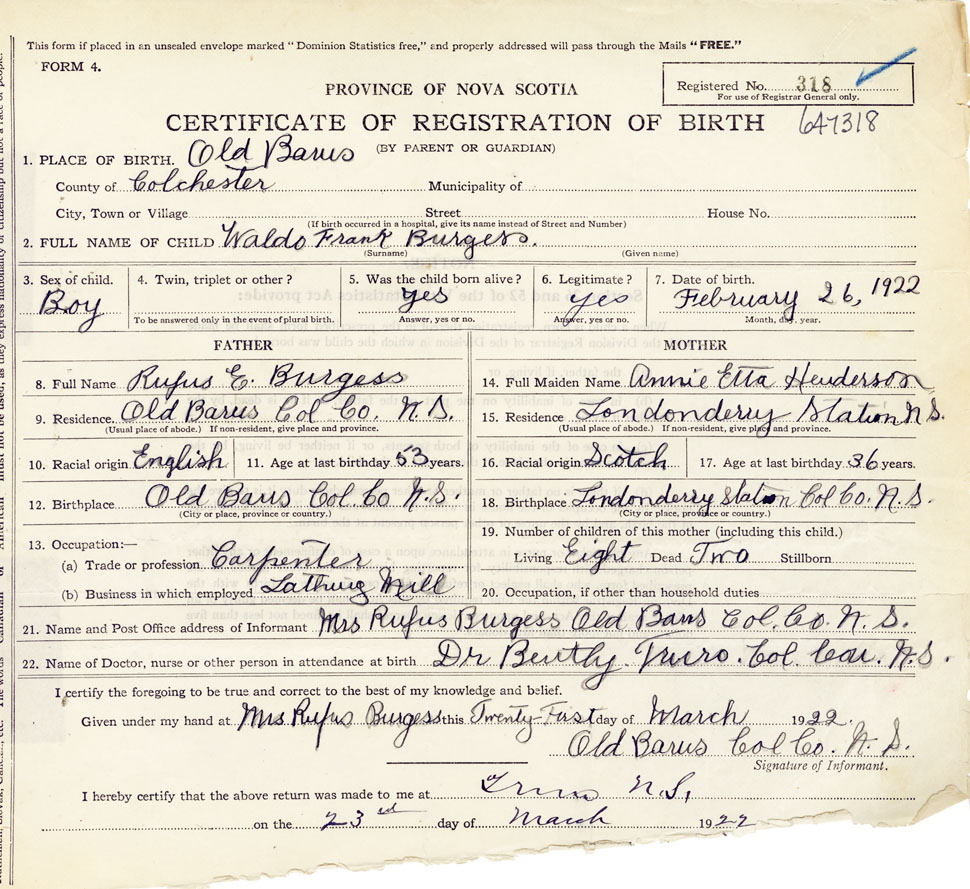 This form if placed in an unsealed envelope marked "Dominion Statistics free," and properly addressed will pass through the Mails "FREE."
FORM 4.
PROVINCE OF NOVA SCOTIA
Registered No. 318
For use of Registrar General only.
CERTIFICATE OF REGISTRATION OF BIRTH 647318
(BY PARENT OR GUARDIAN)
1. PLACE OF BIRTH. Old Barns
County of Colchester Municipality of
City, Town or Village Street House No.
(If birth occurred in a hospital, give its name instead of Street and Number)
2. FULL NAME OF CHILD Waldo Frank Burgess.
(Surname) (Given name)
3. Sex of child. 4. Twin, triplet or other? 5. Was the child born alive? 6. Legitimate? 7. Date of birth.
Boy yes yes February 26, 1922
To be answered only in the event of plural birth. Answer, yes or no. Answer, yes or no. Month, day, year.
FATHER
8. Full Name Rufus E. Burgess
9. Residence Old Barns Col Co. N.S.
(Usual place of abode.) If non-resident, give place and province.
10. Racial origin English 11. Age at last birthday 53 years.
12. Birthplace Old Barns Col. Co N.S.
(City or place, province or country.)
13. Occupation:—
(a) Trade or profession Carpenter
(b) Business in which employed Lathing Mill
MOTHER
14. Full Maiden Name Annie Etta Henderson
15. Residence Londonderry Station N S.
(Usual place of abode.) If non-resident, give place and province.
16. Racial origin Scotch 17. Age at last birthday 36 years.
18. Birthplace Londonderry Station Col Co. N.S.
(City or place, province or country.)
19. Number of children of this mother (including this child.)
Living Eight Dead Two Stillborn
20. Occupation, if other than household duties
21. Name and Post Office address of Informant Mrs Rufus Burgess Old Barns Col. Co. N. S.
22. Name of Doctor, nurse or other person in attendance at birth Dr. Bently. Truro. Col. Cou. N.S.
I certify the foregoing to be true and correct to the best of my knowledge and belief.
Given under my hand at Mrs Rufus Burgess this Twenty-First day of March 1922.
Old Barns Col Co. N. S.
Signature of Informant.
I hereby certify that the above return was made to me at Truro N.S,
on the 23rd day of March 1922